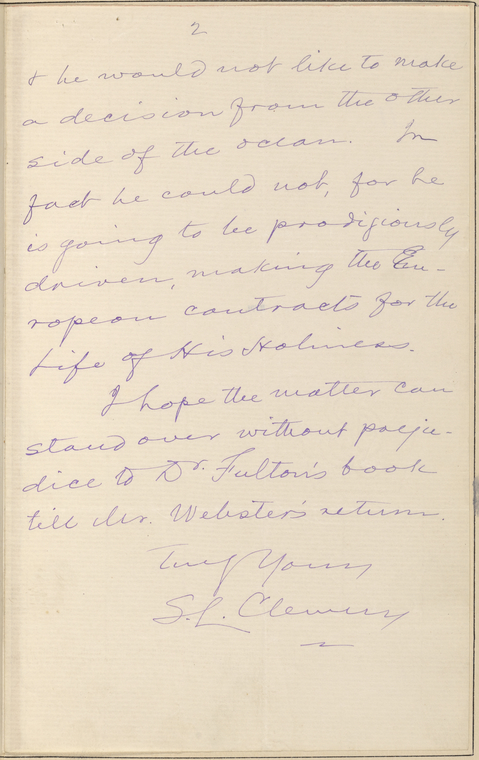 2
& he would not like to make
a decision from the other
side of the ocean. In
fact he could not, for he
is going to be prodigiously
driven, making the Eu-
ropean contracts for the
Life of His Holiness.
I hope the matter can
stand over without preju-
dice to Dr. Fulton's book
till Mr. Webster's return.
Truly Yours
S. L. Clemens